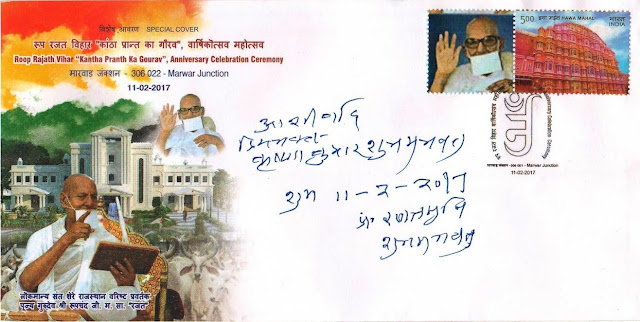 विशेष आवरण SPECIAL COVER
रूप रजत विहार "कांठा प्रान्त का गौरव", वार्षिकोत्सव महोत्सव
Roop Rajath Vihar "Kantha Pranth Ka Gourav", Anniversary Celebration Ceremony
मारवाड़ जंक्शन - 306 022 - Marwar Junction
11-02-2017
5.00 हवा महल HAWA MAHAL
भारत
INDIA
आशीर्वाद
कृष्णा कुमार
शुभ 11-2-2017
मारवाड़ जंक्शन - 306 001 - Marwar Junction
11-02-2017
लोकमान्य संत शेरे राजस्थान वरिष्ठ प्रवर्तक
पूज्य गुरुदेव श्री रूपचंद जी. म. सा. "रजत"